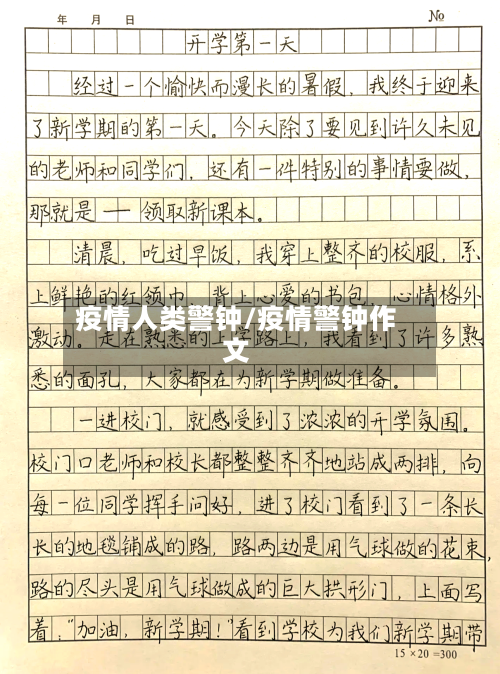 年 月 日 №
开学第一天
经过一个愉快而漫长的暑假，我终于迎来
了新学期的第一天。今天除了要见到许久未见
的老师和同学们，还有一件特别的事情要做，
那就是——领取新课本。
清晨，吃过早饭，我穿上整齐的校服，系
上鲜艳的红领巾，背上心爱的书包，心情格外
疫情人类警钟/疫情警钟作
激动。走在熟悉的上学路上，我看到了许多熟
文
悉的面孔，大家都在为新学期做准备。
一进校门，就感受到了浓浓的开学氛围。
校门口老师和校长都整整齐齐地站成两排，向
每一位同学挥手问好，进了校门看到了一条长
长的地毯铺成的路，路两边是用气球做的花束，
路的尽头是用气球做成的巨大拱形门，上面写
着：“加油，新学期！”看到学校为我们新学期带
15×20=300